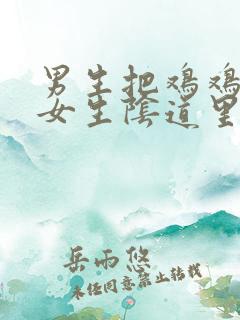 男生把鸡鸡
女生陰道里
岳雨悠
未经同意禁止转载